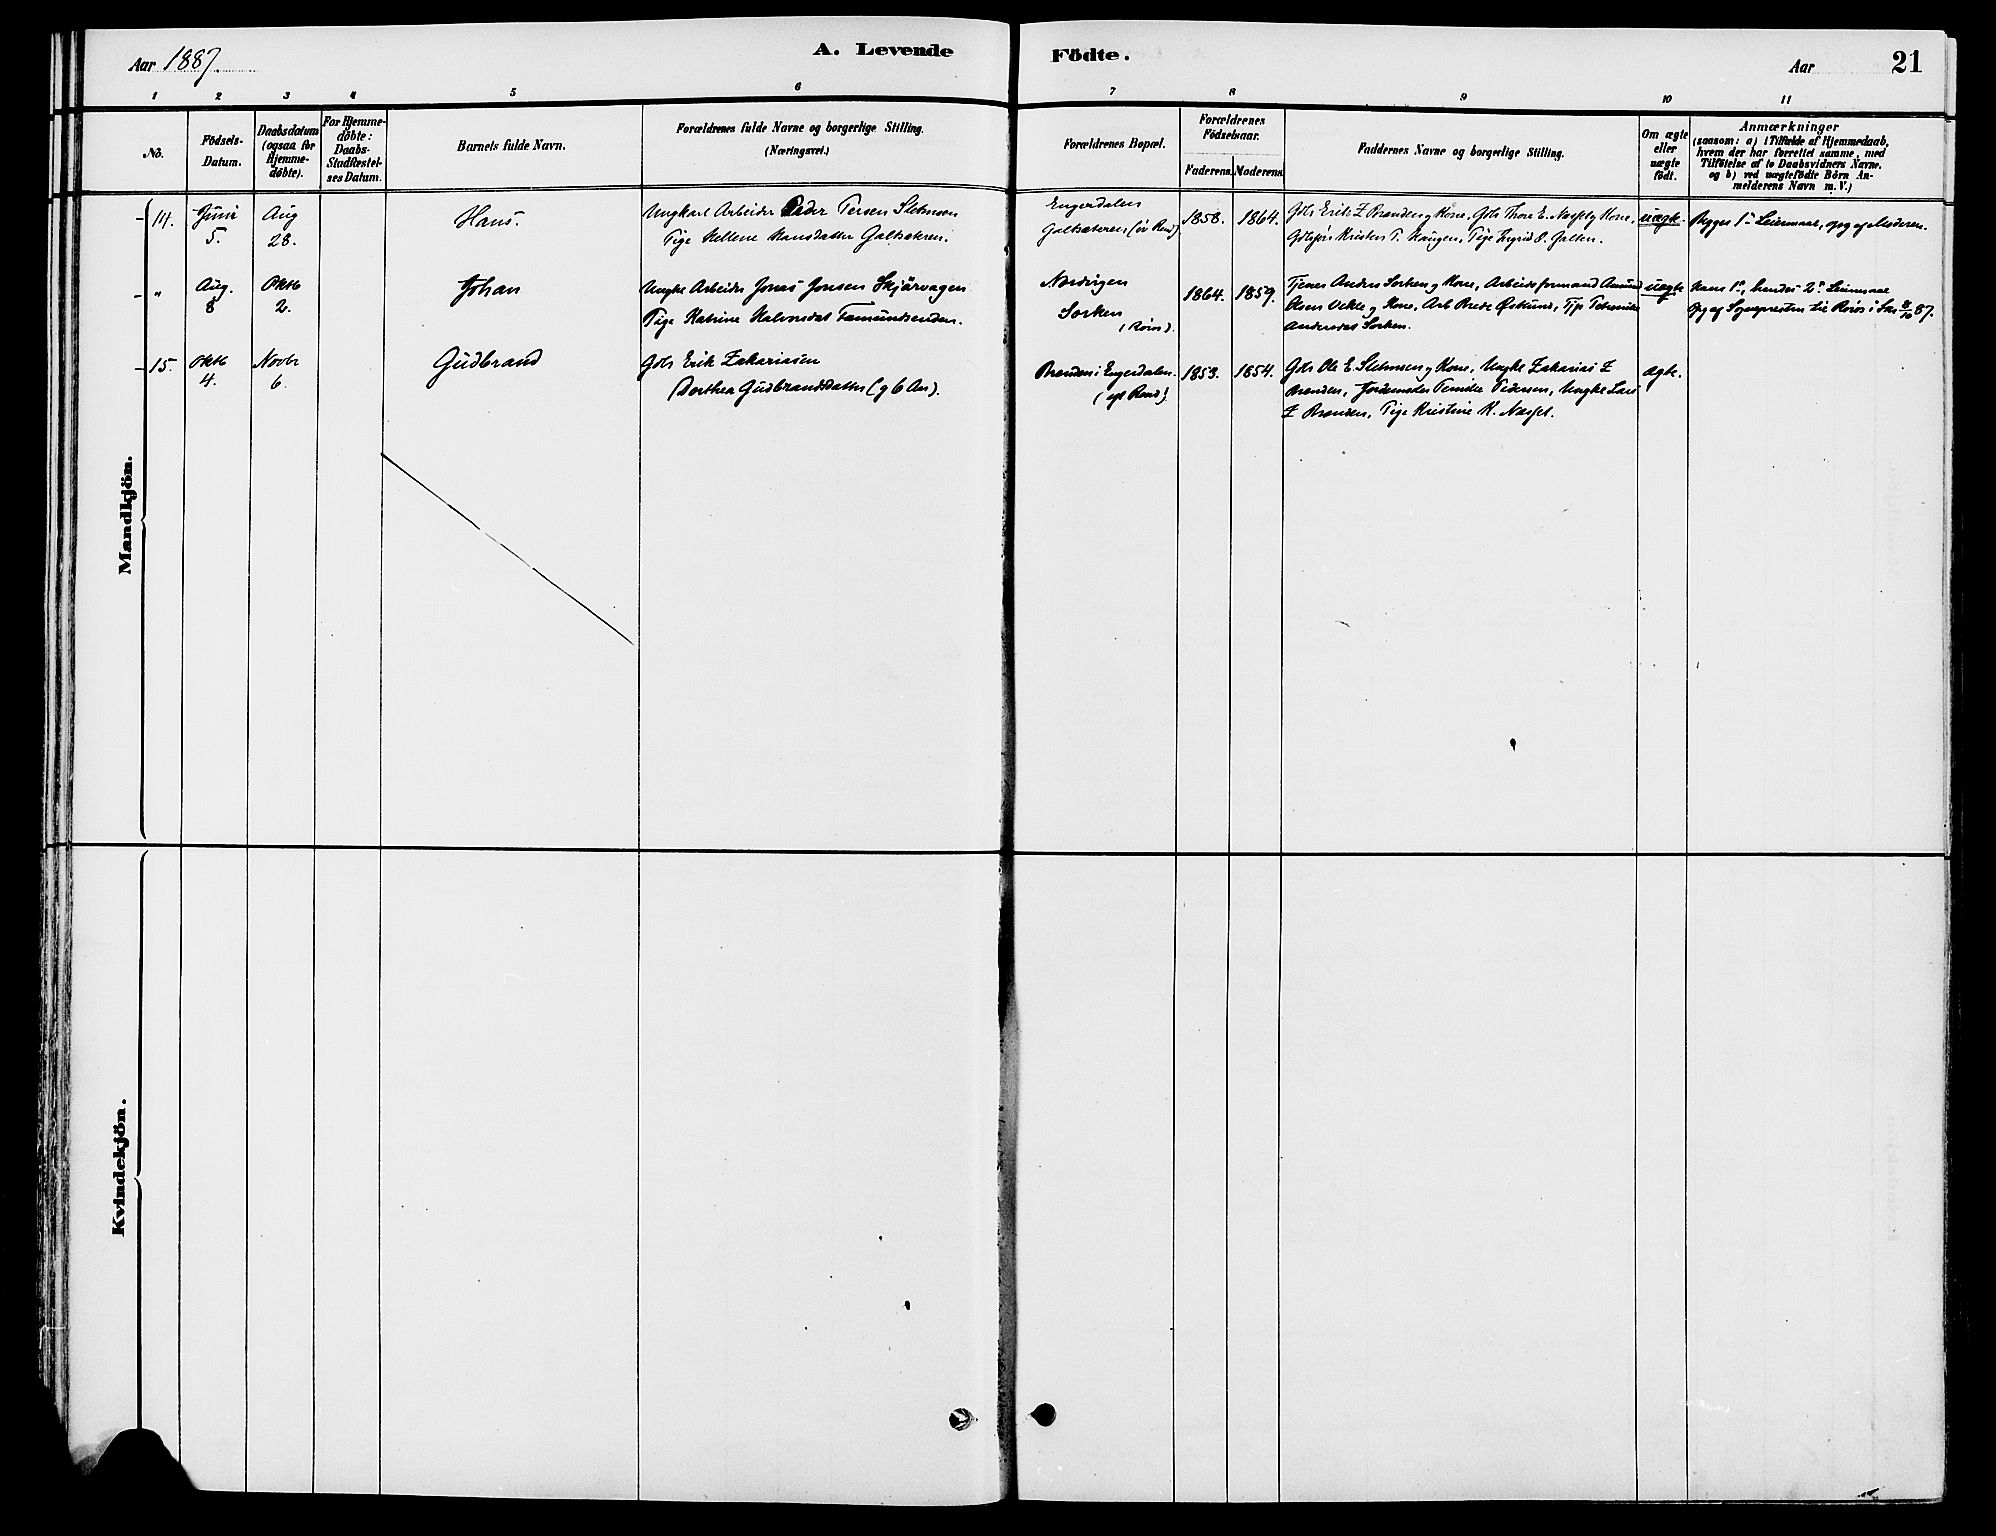 Aar 1887.
A. Levende
Födte.
Aar
21
1 2 3 4 5 6 7 8 9 10 11
No.
Födsels-
Datum.
Daabsdatum
(ogsaa for
Hjemme-
døbte).
For Hjemme-
døbte:
Daabs-
Stadfæstel-
ses Datum.
Barnets fulde Navn.
Forældrenes fulde Navne og borgerlige Stilling.
(Næringsvei.)
Forældrenes Bopæl.
Forældrenes
Födselsaar.
Faderens. Moderens.
Faddernes Navne og borgerlige Stilling.
Om ægte
eller
uægte
födt.
Anmærkninger
(saasom: a) i Tilfælde af Hjemmedaab,
hvem der har forrettet samme, med
Tilföielse af to Daabsvidners Navne.
og b) ved uægtefödte Börn An-
melderens Navn m. V.)
Mandkjön.
14. Juni
5.
Aug
28.
Hans.
Ungkarl Arbeider Peder Persen Sletmoen
Pige Hellene Hansdatter Galtsæteren.
Engerdalen
Galtsæteren (ör Rend)
1858. 1864.
Gbr Erik Z Brænden og Kone, Gbr Thore E. Næsset og Kone,
Kristen T. Haugen, Pige Ingrid O. Galten.
uægte.
Begges 1ste Leiermaal, opg af Moderen.
" Aug.
8
Oktb
2.
Johan
Ungk Arbeider Jonas Jonsen Skjärvagen
Pige Katrine Halvorsdat Fæmundsenden.
Nordvigen
Sorken
(Röros).
1864. 1859.
Tjener Anders Sorken og Kone, Arbeidsformand Amund
Olsen og Kone, Arb Østlund, Petronille
Andersdt Sorken.
uægte
Hans 1ste, hendes 2det Leiermaal
Opg af Sognepresten til Röros i Skr 8/10 87.
15. Oktb
4.
Novbr
6.
Gudbrand
Gbr Erik Zakariasen
Dorthea Gudbrandsdatter (g 6 Aar).
Brænden i Engerdalen.
(Rend)
1853. 1854.
Gbr Ole E. Sletmoen og Kone, Ungk Zakarias Z
Brænden, Jordemoder Pernille Pedersen, Ungk Lars
Z Brænden, Pige Kristine K. Næsset.
ægte.
Kvindekjön.